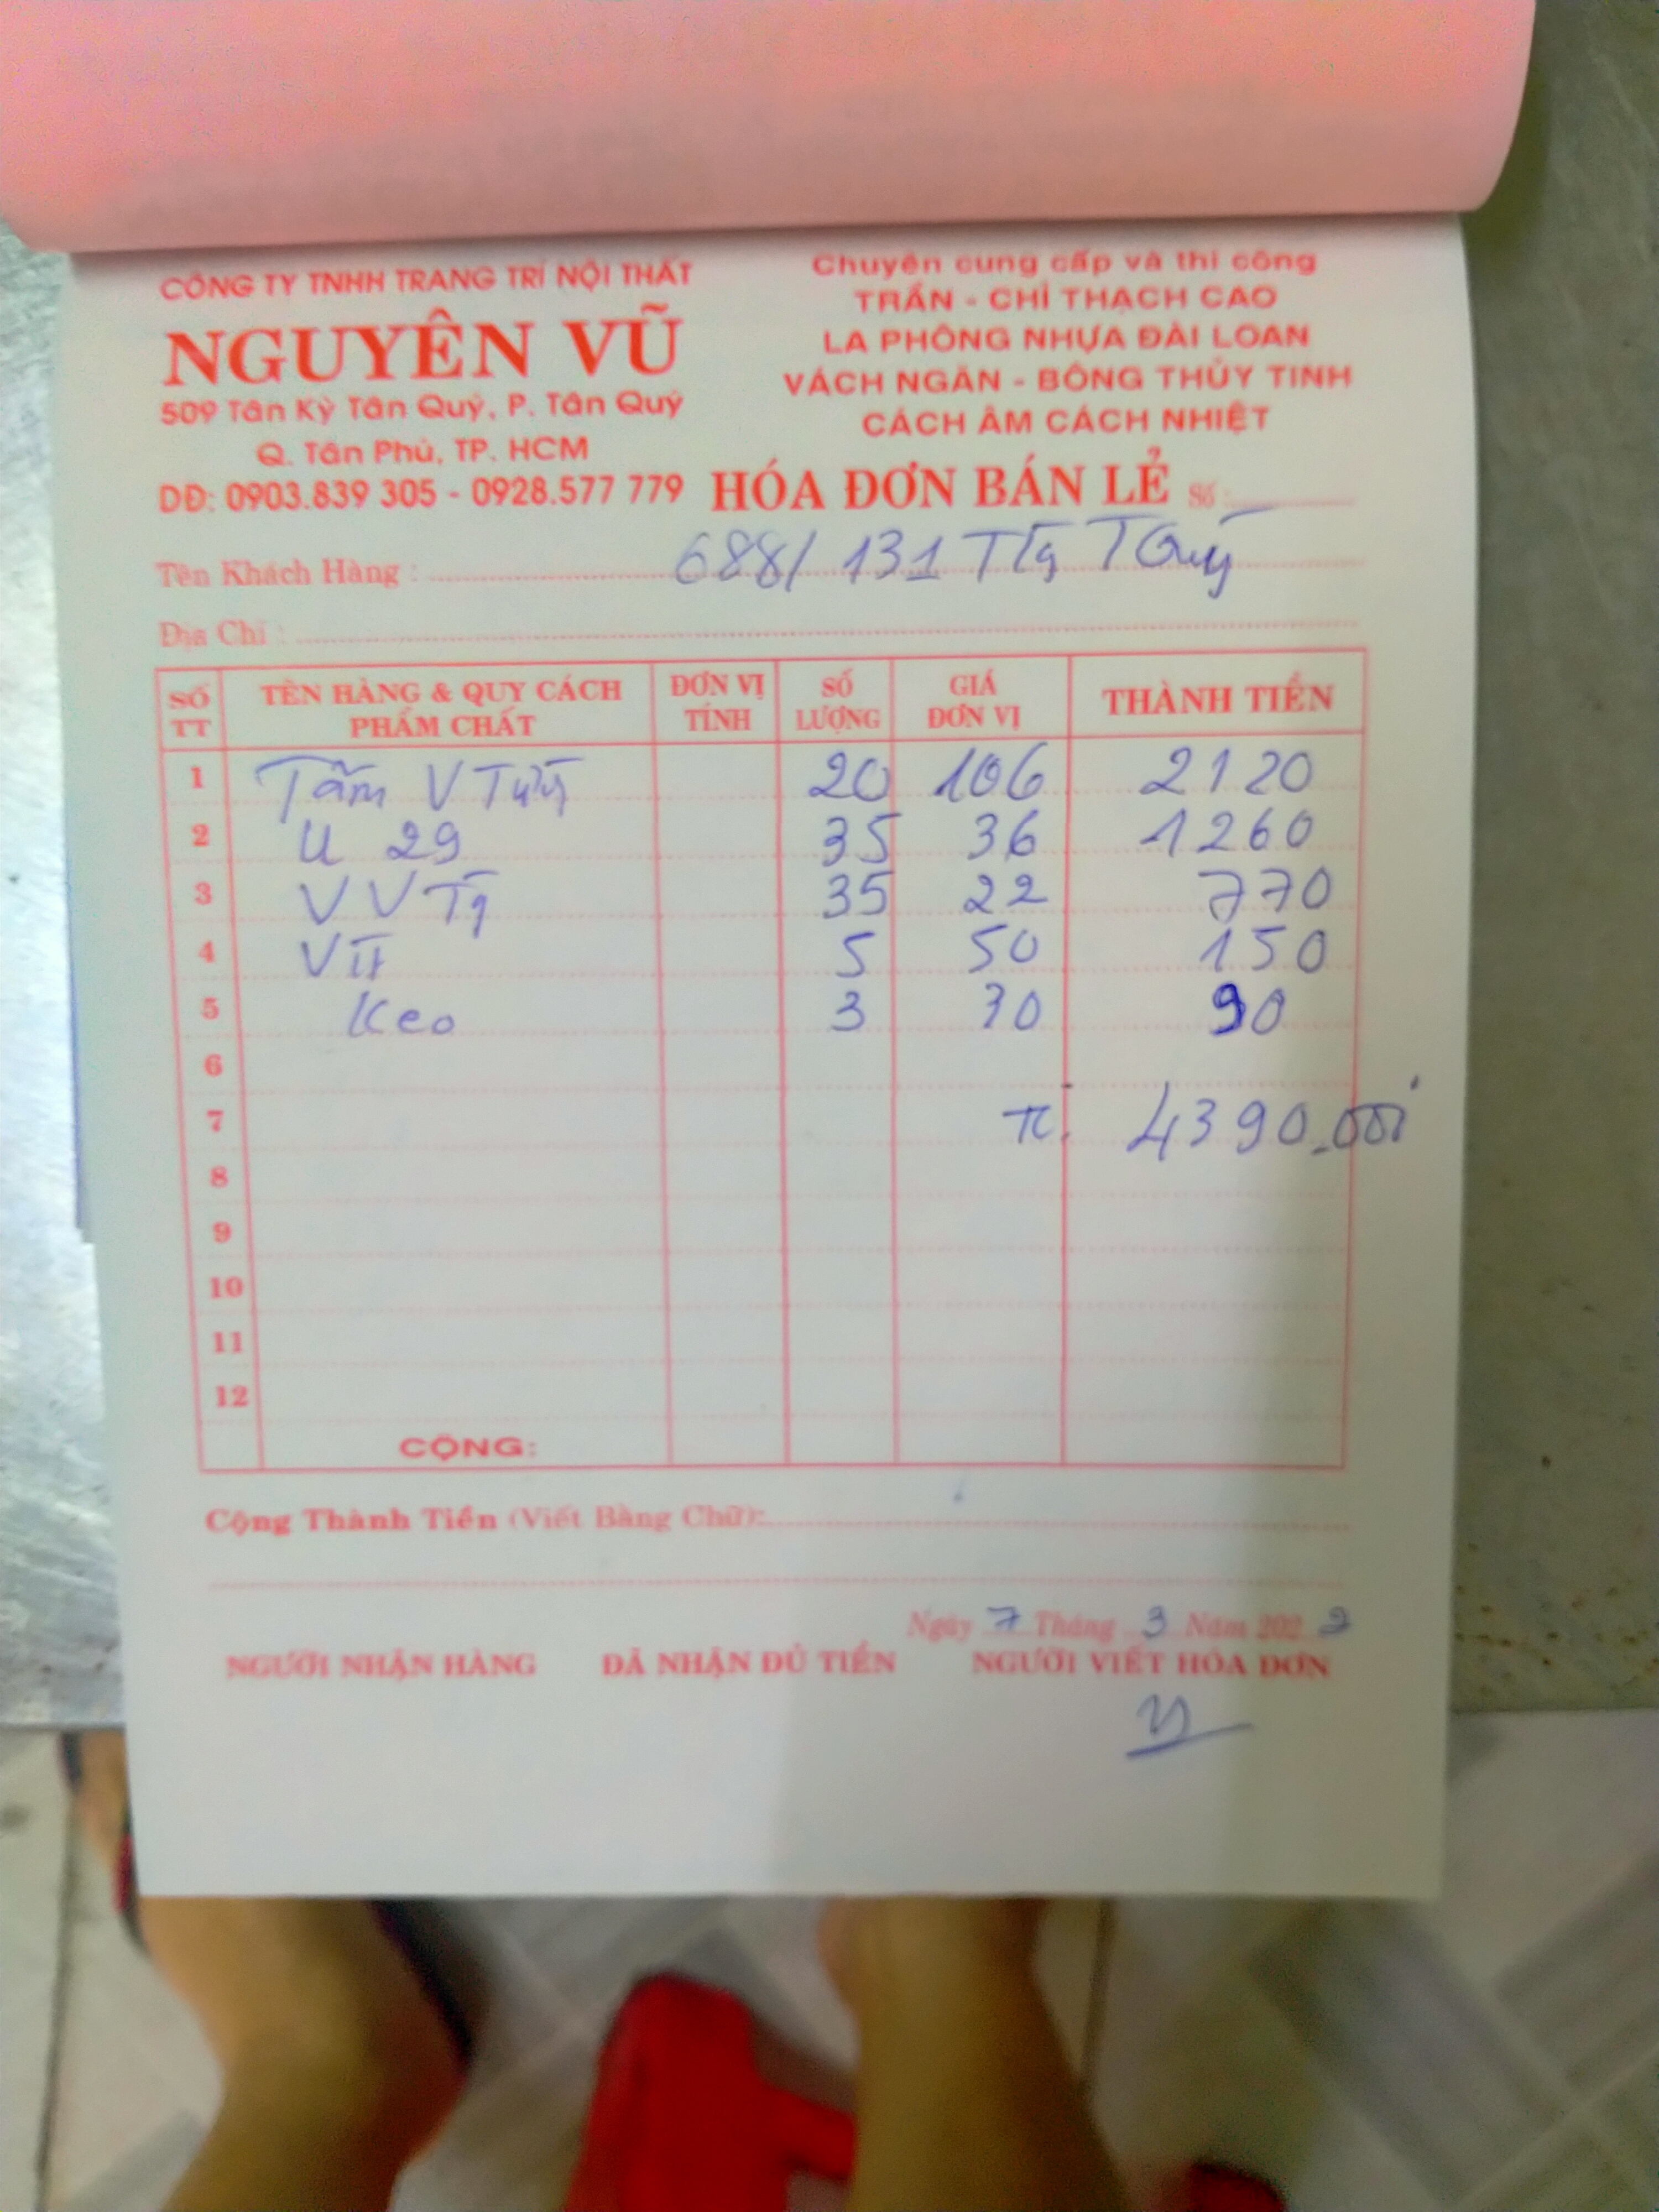 CÔNG TY TNHH TRANG TRÍ NỘI THẤT
NGUYÊN VŨ
509 Tân Kỳ Tân Quý, P. Tân Quý
Q. Tân Phú, TP. HCM
DĐ: 0903.839 305 - 0928.577 779
Chuyên cung cấp và thi công
TRẦN - CHỈ THẠCH CAO
LA PHÔNG NHỰA ĐÀI LOAN
VÁCH NGĂN - BÔNG THỦY TINH
CÁCH ÂM CÁCH NHIỆT
HÓA ĐƠN BÁN LẺ Số :
Tên Khách Hàng : 688/ 131 TQuý
Địa Chỉ :
SỐ TT TÊN HÀNG & QUY CÁCH PHẨM CHẤT ĐƠN VỊ TÍNH SỐ LƯỢNG GIÁ ĐƠN VỊ THÀNH TIỀN
1 Tấm V 20 106 2120
2 U 29 35 36 1260
3 V V 35 22 770
4 5 50 150
5 Keo 3 30 90
6
7 4390.000
8
9
10
11
12
CỘNG:
Cộng Thành Tiền (Viết Bằng Chữ):
Ngày 7 Tháng 3 Năm 202
NGƯỜI NHẬN HÀNG ĐÃ NHẬN ĐỦ TIỀN NGƯỜI VIẾT HÓA ĐƠN